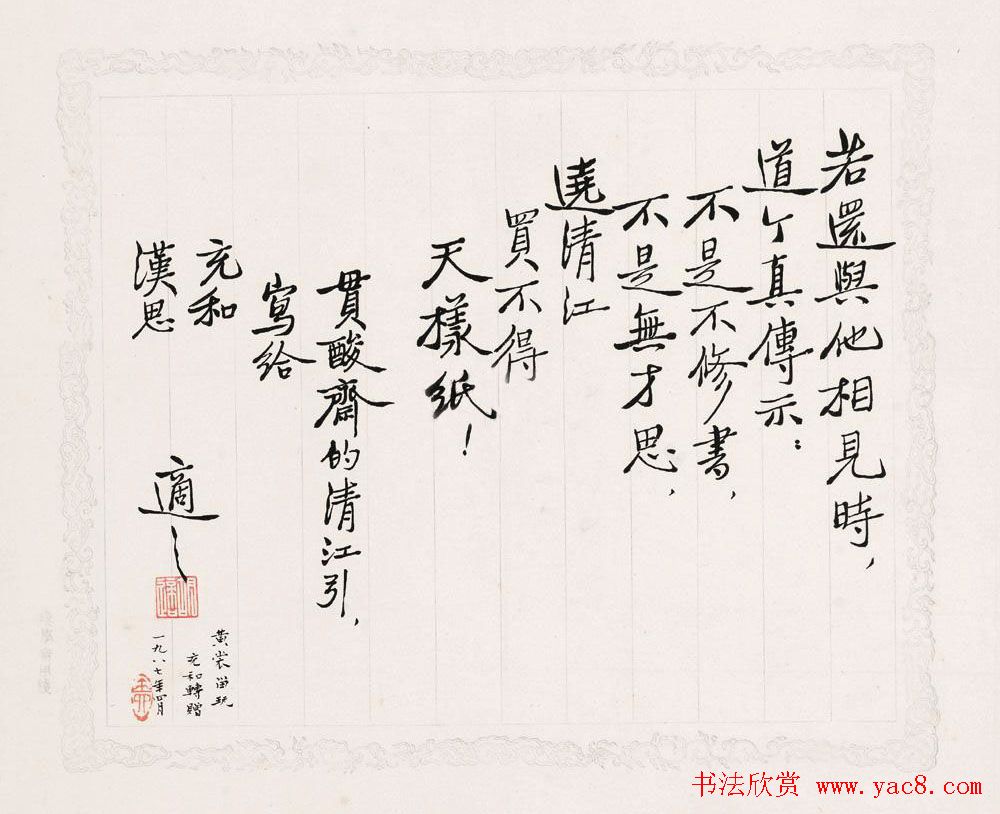 若還與他相見時，
道个真傳示：
不是不修書，
不是無才思，
遶清江
買不得
天樣紙！
貫酸齋的清江引，
寫給
充和
漢思
適之
黃裳留玩
充和轉贈
一九八七年四月
书法欣赏 www.yac8.com